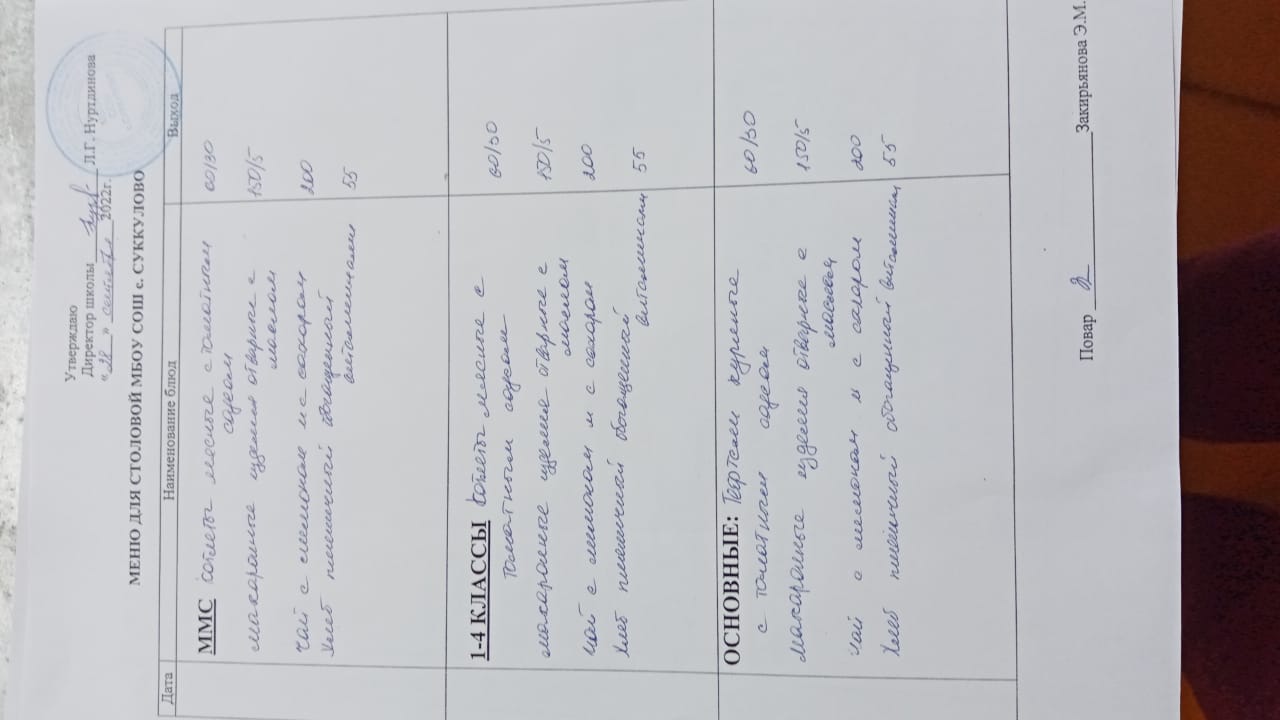 Утверждаю
Директор школы Л.Г. Нуртдинова
«28» сентября 2022г.
МЕНЮ ДЛЯ СТОЛОВОЙ МБОУ СОШ с. СУККУЛОВО
Дата Наименование блюд Выход
ММС котлеты мясные с томатным 60/30
соусом
макаронные изделия отварные с 150/5
маслом
чай с лимоном и с сахаром 200
Хлеб пшеничный обогащенный 55
витаминами
1-4 КЛАССЫ Котлеты мясные с 60/30
томатным соусом
макаронные изделия отварные с 150/5
маслом
чай с лимоном и с сахаром 200
Хлеб пшеничный обогащенный 55
витаминами
ОСНОВНЫЕ: Тефтели куриные 60/30
с томатным соусом
Макаронные изделия отварные с 150/5
маслом
чай с лимоном и с сахаром 200
Хлеб пшеничный обогащенный витаминами 55
Повар Закирьянова Э.М.